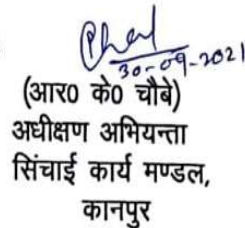 30-09-2021
(आर0 के0 चौबे)
अधीक्षण अभियन्ता
सिंचाई कार्य मण्डल,
कानपुर